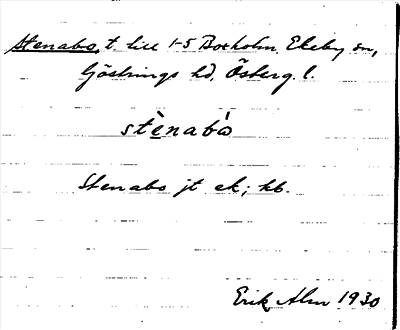 Stenabo, t. lill 1-5 Boxholm, Ekeby sn,
Göstrings hd, Österg. l.
stènabo
Stenabo jt ek; kb.
Erik Alm 1930